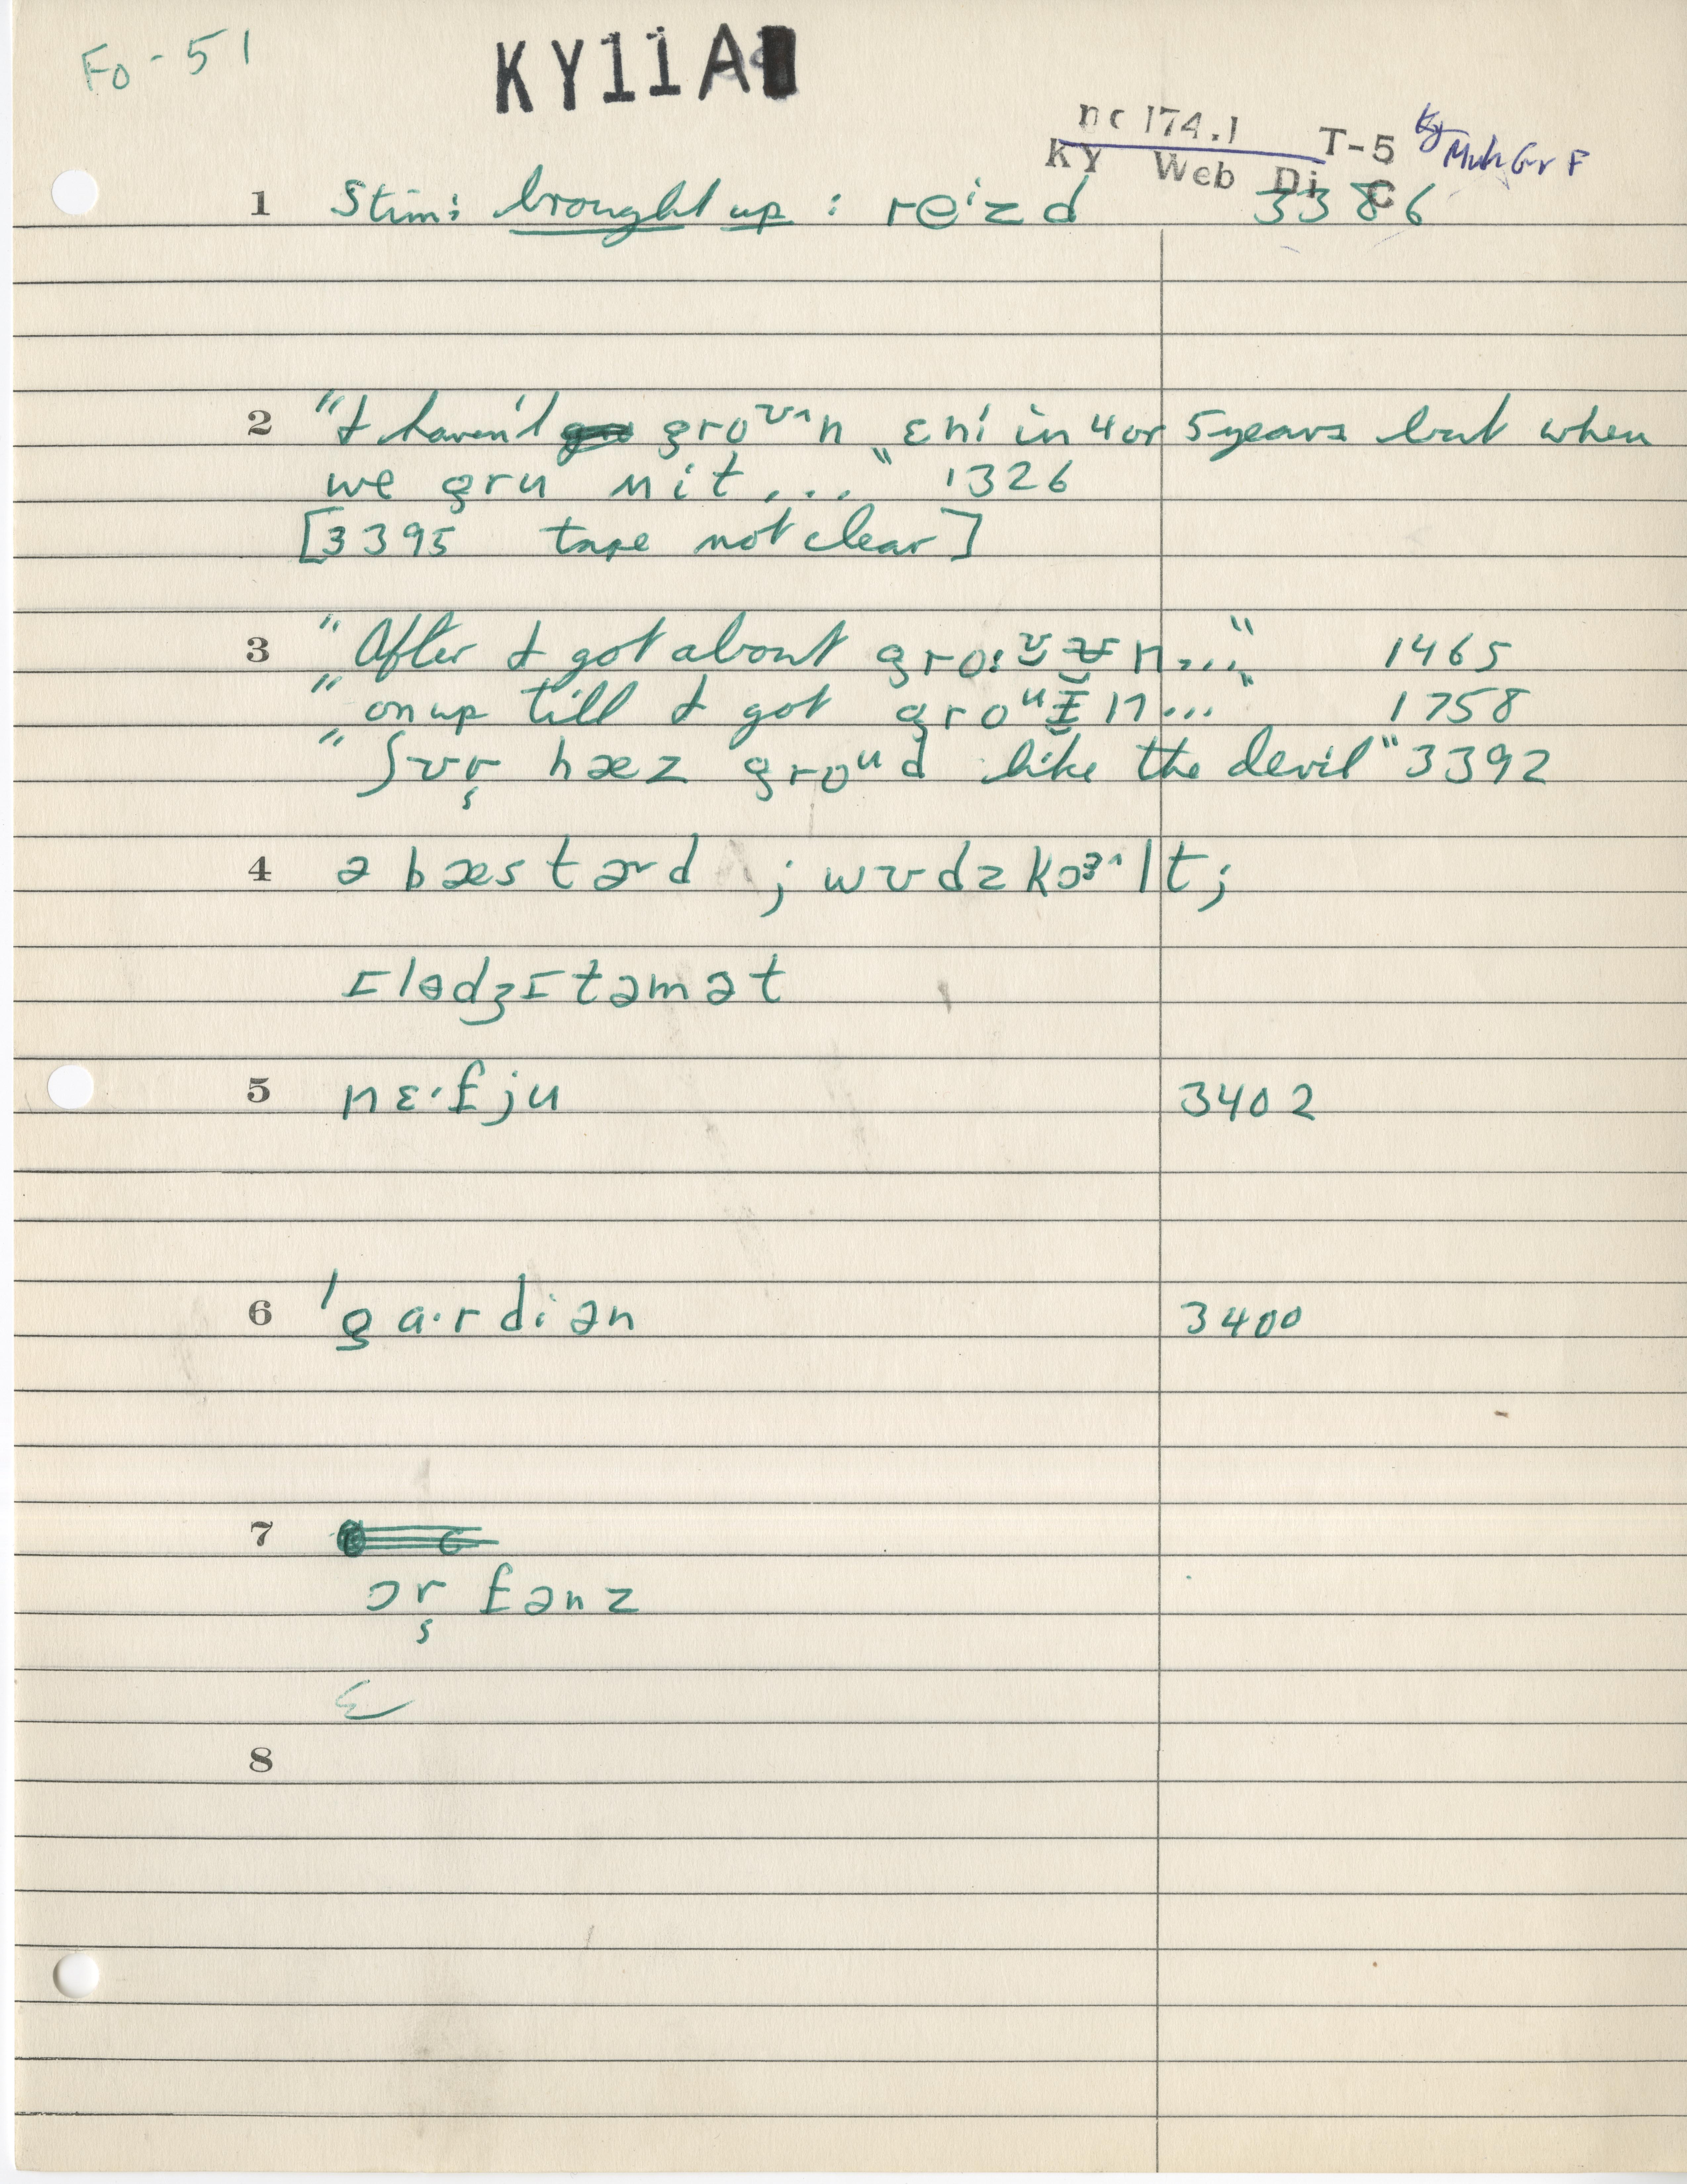 Fo-51
KY11A
nc 174.1 T-5 Ky
KY Web Di C Muh Gr F
1 Stim: brought up : reⁱzd 3386
2 "I haven't groᶷ^n ɛni in 4 or 5 years but when
we gru mit..." 1326
[3395 tape not clear]
3 "After I got about gro:n..." 1465
"on up till I got groᵘɪn..." 1758
"ʃʊr hæz groᵘd like the devil" 3392
4 ə bæstɚd ; wʊdzkɔɜ^lt;
ɪlədʒɪtəmət
5 nɛ·fju 3402
6 'ga·rdiən 3400
7
ɔr fənz
8